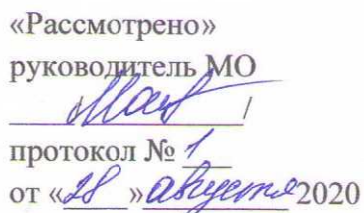 «Рассмотрено»
руководитель МО
/
протокол № 1
от «28» августа 2020